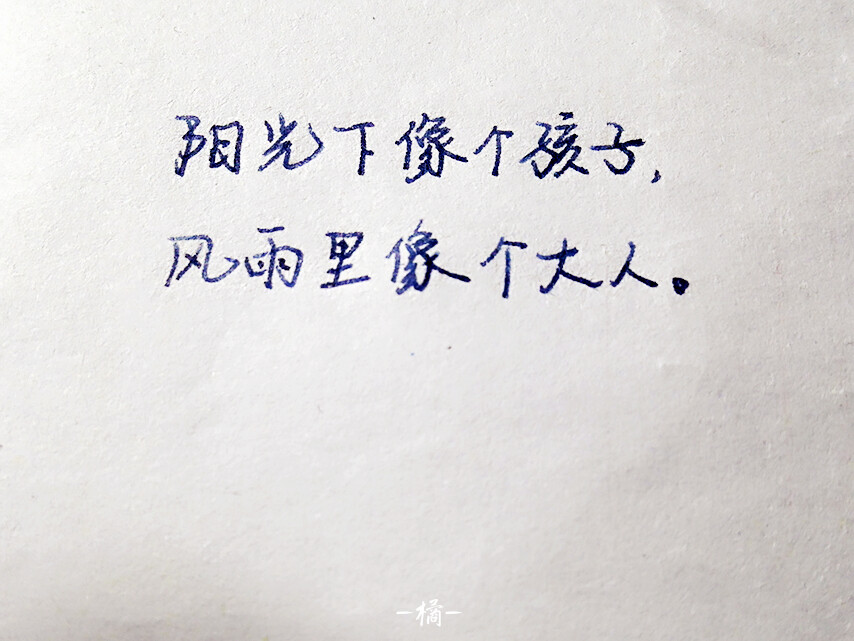 阳光下像个孩子,
风雨里像个大人。
-橘-